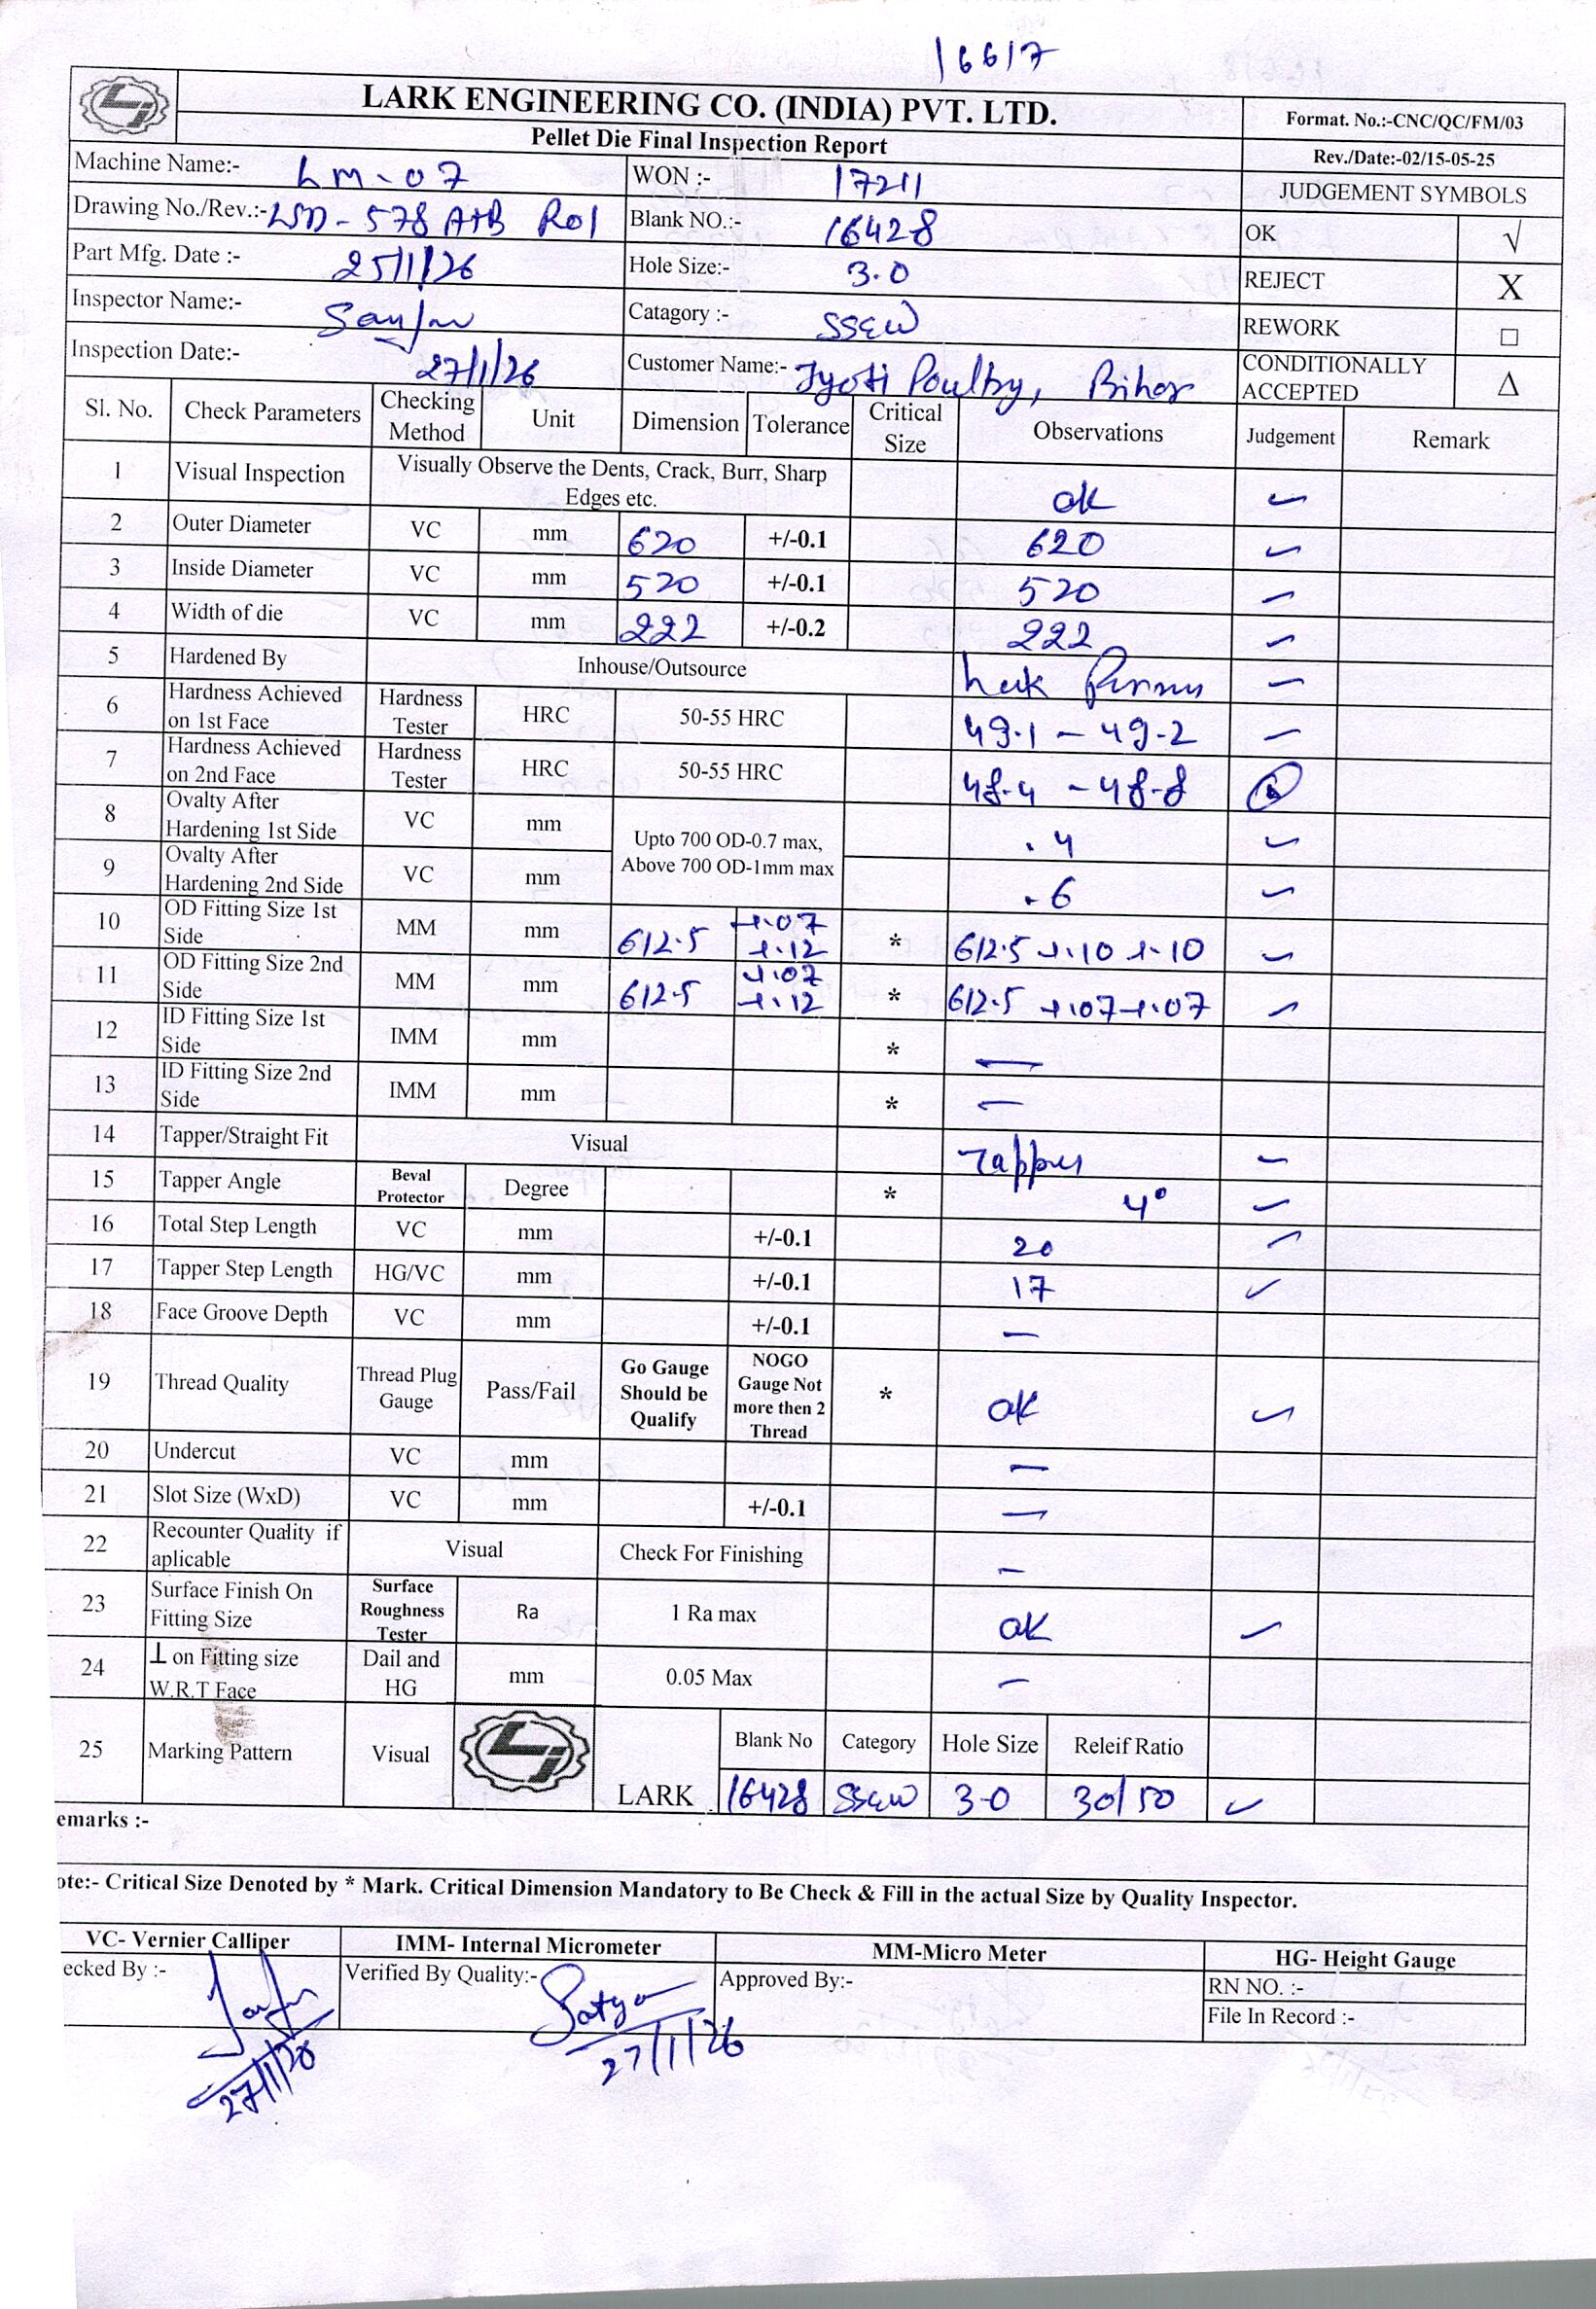 16617
LARK ENGINEERING CO. (INDIA) PVT. LTD.
Pellet Die Final Inspection Report
Format. No.:-CNC/QC/FM/03
Rev./Date:-02/15-05-25
Machine Name:- LM-07 WON :- 17211 JUDGEMENT SYMBOLS
Drawing No./Rev.:- LSD-578 A+B R01 Blank NO.:- 16428 OK √
Part Mfg. Date :- 25/1/26 Hole Size:- 3.0 REJECT X
Inspector Name:- Catagory :- SSEW REWORK □
Inspection Date:- 27/1/26 Customer Name:- Jyoti Poultry, Bihar CONDITIONALLY ACCEPTED Δ
Sl. No. Check Parameters Checking Method Unit Dimension Tolerance Critical Size Observations Judgement Remark
1 Visual Inspection Visually Observe the Dents, Crack, Burr, Sharp Edges etc. ok ✓
2 Outer Diameter VC mm 620 +/-0.1 620 ✓
3 Inside Diameter VC mm 520 +/-0.1 520 ✓
4 Width of die VC mm 222 +/-0.2 222 ✓
5 Hardened By Inhouse/Outsource ✓
6 Hardness Achieved on 1st Face Hardness Tester HRC 50-55 HRC 49.1 - 49.2 ✓
7 Hardness Achieved on 2nd Face Hardness Tester HRC 50-55 HRC 48.4 - 48.8
8 Ovalty After Hardening 1st Side VC mm Upto 700 OD-0.7 max, Above 700 OD-1mm max .4 ✓
9 Ovalty After Hardening 2nd Side VC mm .6 ✓
10 OD Fitting Size 1st Side MM mm 612.5 +.07 +.12 * 612.5 +.10 +.10 ✓
11 OD Fitting Size 2nd Side MM mm 612.5 +.07 +.12 * 612.5 +.07 +.07 ✓
12 ID Fitting Size 1st Side IMM mm * —
13 ID Fitting Size 2nd Side IMM mm * —
14 Tapper/Straight Fit Visual Tapper ✓
15 Tapper Angle Beval Protector Degree * 4° ✓
16 Total Step Length VC mm +/-0.1 20 ✓
17 Tapper Step Length HG/VC mm +/-0.1 17 ✓
18 Face Groove Depth VC mm +/-0.1 —
19 Thread Quality Thread Plug Gauge Pass/Fail Go Gauge Should be Qualify NOGO Gauge Not more then 2 Thread * ok ✓
20 Undercut VC mm —
21 Slot Size (WxD) VC mm +/-0.1 —
22 Recounter Quality if aplicable Visual Check For Finishing —
23 Surface Finish On Fitting Size Surface Roughness Tester Ra 1 Ra max ok ✓
24 ⊥ on Fitting size W.R.T Face Dail and HG mm 0.05 Max —
25 Marking Pattern Visual LARK Blank No Category Hole Size Releif Ratio
16428 SSEW 3.0 30/50 ✓
emarks :-
ote:- Critical Size Denoted by * Mark. Critical Dimension Mandatory to Be Check & Fill in the actual Size by Quality Inspector.
VC- Vernier Calliper IMM- Internal Micrometer MM-Micro Meter HG- Height Gauge
ecked By :- Verified By Quality:- Satya Approved By:- RN NO. :-
File In Record :-
27/1/26 27/1/26